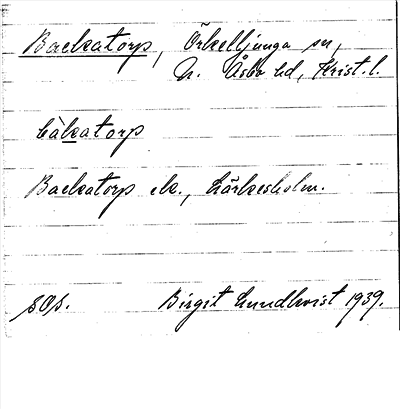 Backatorp, Örkelljunga sn,
N. Åsbo hd, Krist. l.
bàkatorp
Backatorp ek., Lärkesholm.
sOs. Birgit Lundkvist 1939.